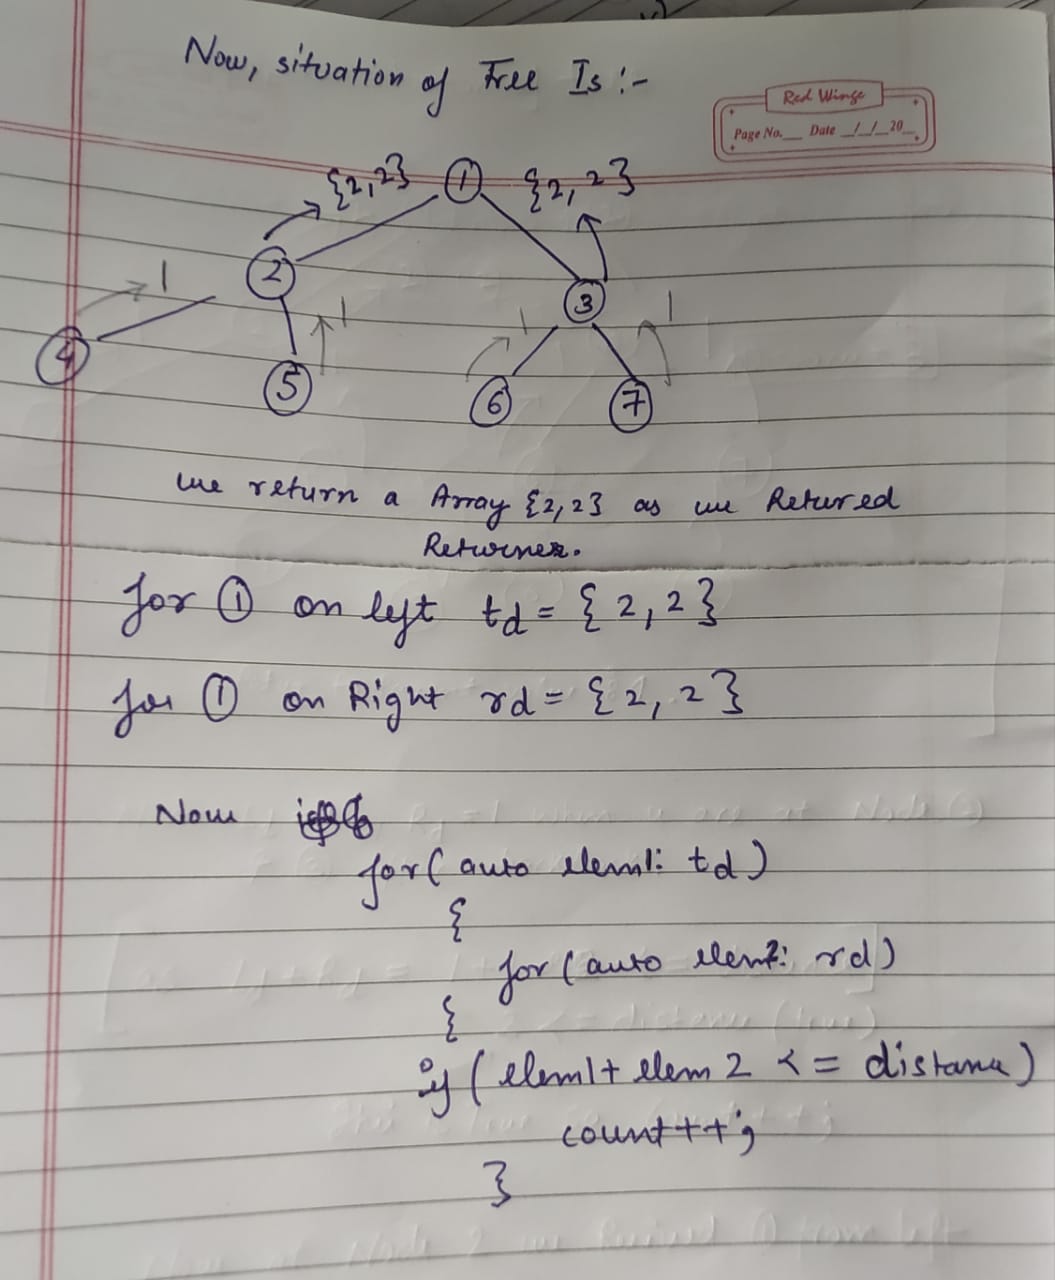 Now, situation of Tree Is :-
Red Wings
Page No.___ Date __/__/__20__
{2,2} 1 {2, 2}
2
1
3
1 1 1
4
5
6 7
we return a Array {2,2} as we Retured
Returnen.
for 1 on left td = { 2, 2 }
for 1 on Right rd = { 2, 2 }
Now
for( auto elem1: td )
{
for ( auto elem2: rd )
{
if ( elem1+ elem 2 <= distana )
count++;
}